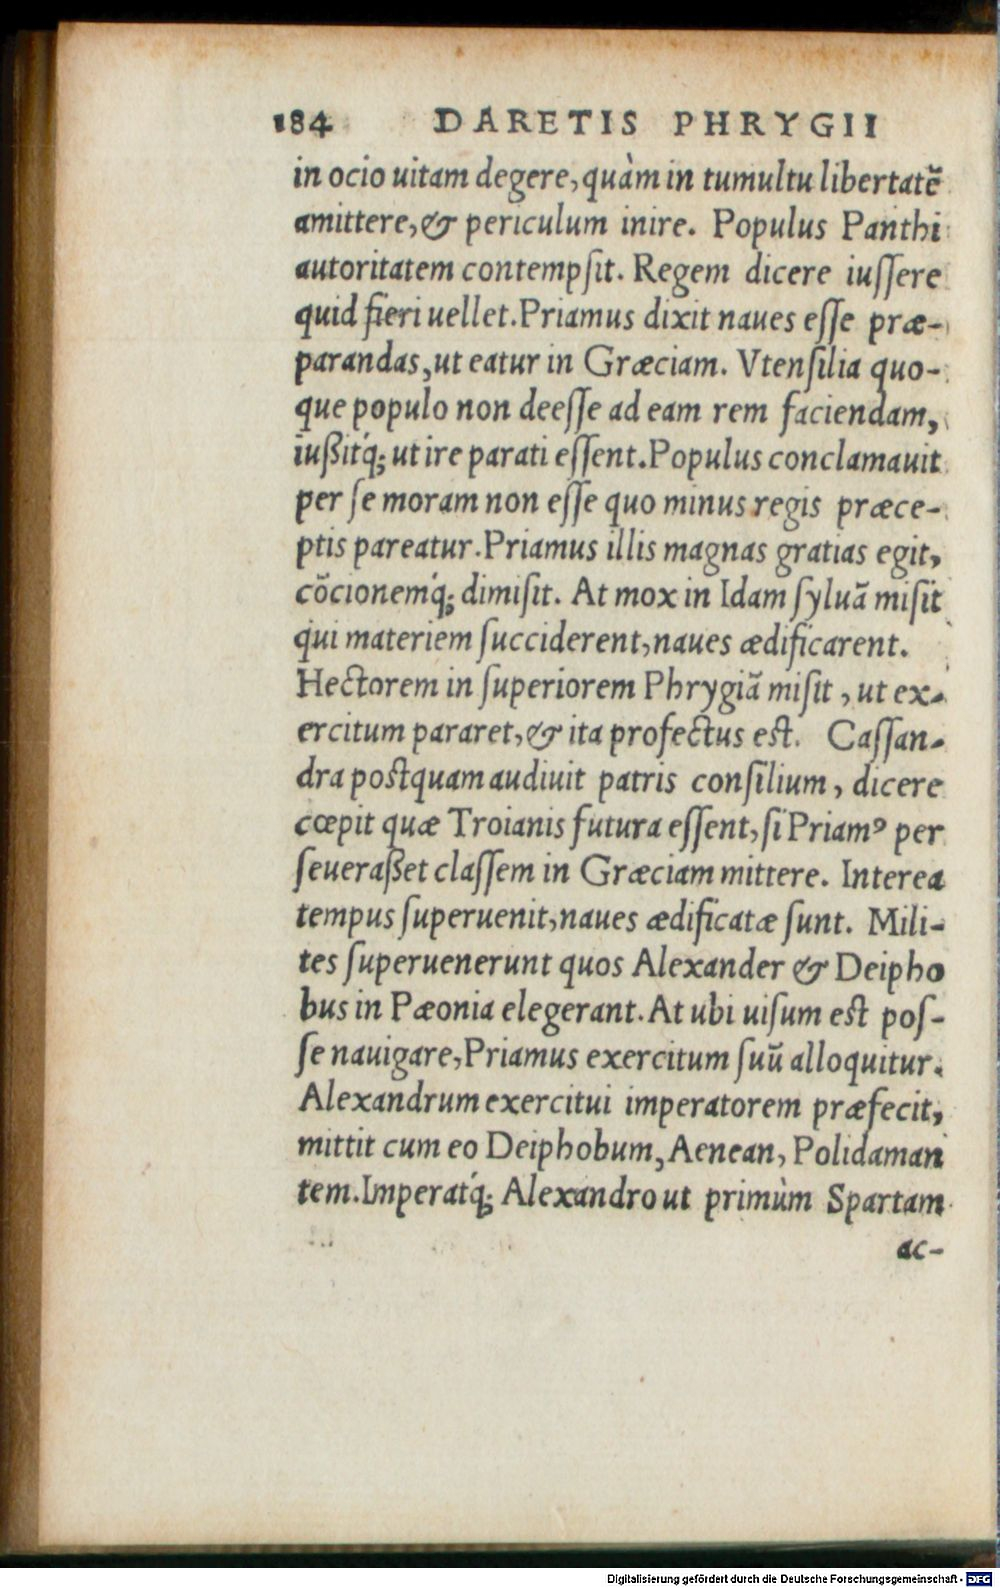 184 DARETIS PHRYGII
in ocio uitam degere, quàm in tumultu libertatē
amittere, & periculum inire. Populus Panthi
autoritatem contempſit. Regem dicere iuſſere
quid fieri uellet. Priamus dixit naues eſſe præ-
parandas, ut eatur in Græciam. Vtenſilia quo-
que populo non deeſſe ad eam rem faciendam,
iußitq́; ut ire parati eſſent. Populus conclamauit
per ſe moram non eſſe quo minus regis præce-
ptis pareatur. Priamus illis magnas gratias egit,
cōcionemq́; dimiſit. At mox in Idam ſyluā miſit
qui materiem ſucciderent, naues ædificarent.
Hectorem in ſuperiorem Phrygiā miſit, ut ex-
ercitum pararet, & ita profectus eſt. Caſſan-
dra poſtquam audiuit patris conſilium, dicere
cœpit quæ Troianis futura eſſent, ſi Priamꝰ per
ſeueraßet claſſem in Græciam mittere. Interea
tempus ſuperuenit, naues ædificatæ ſunt. Mili-
tes ſuperuenerunt quos Alexander & Deipho
bus in Pæonia elegerant. At ubi uiſum eſt poſ-
ſe nauigare, Priamus exercitum ſuū alloquitur.
Alexandrum exercitui imperatorem præfecit,
mittit cum eo Deiphobum, Aenean, Polidaman
tem. Imperatq́; Alexandro ut primùm Spartam
ac-
Digitalisierung gefördert durch die Deutsche Forschungsgemeinschaft - DFG